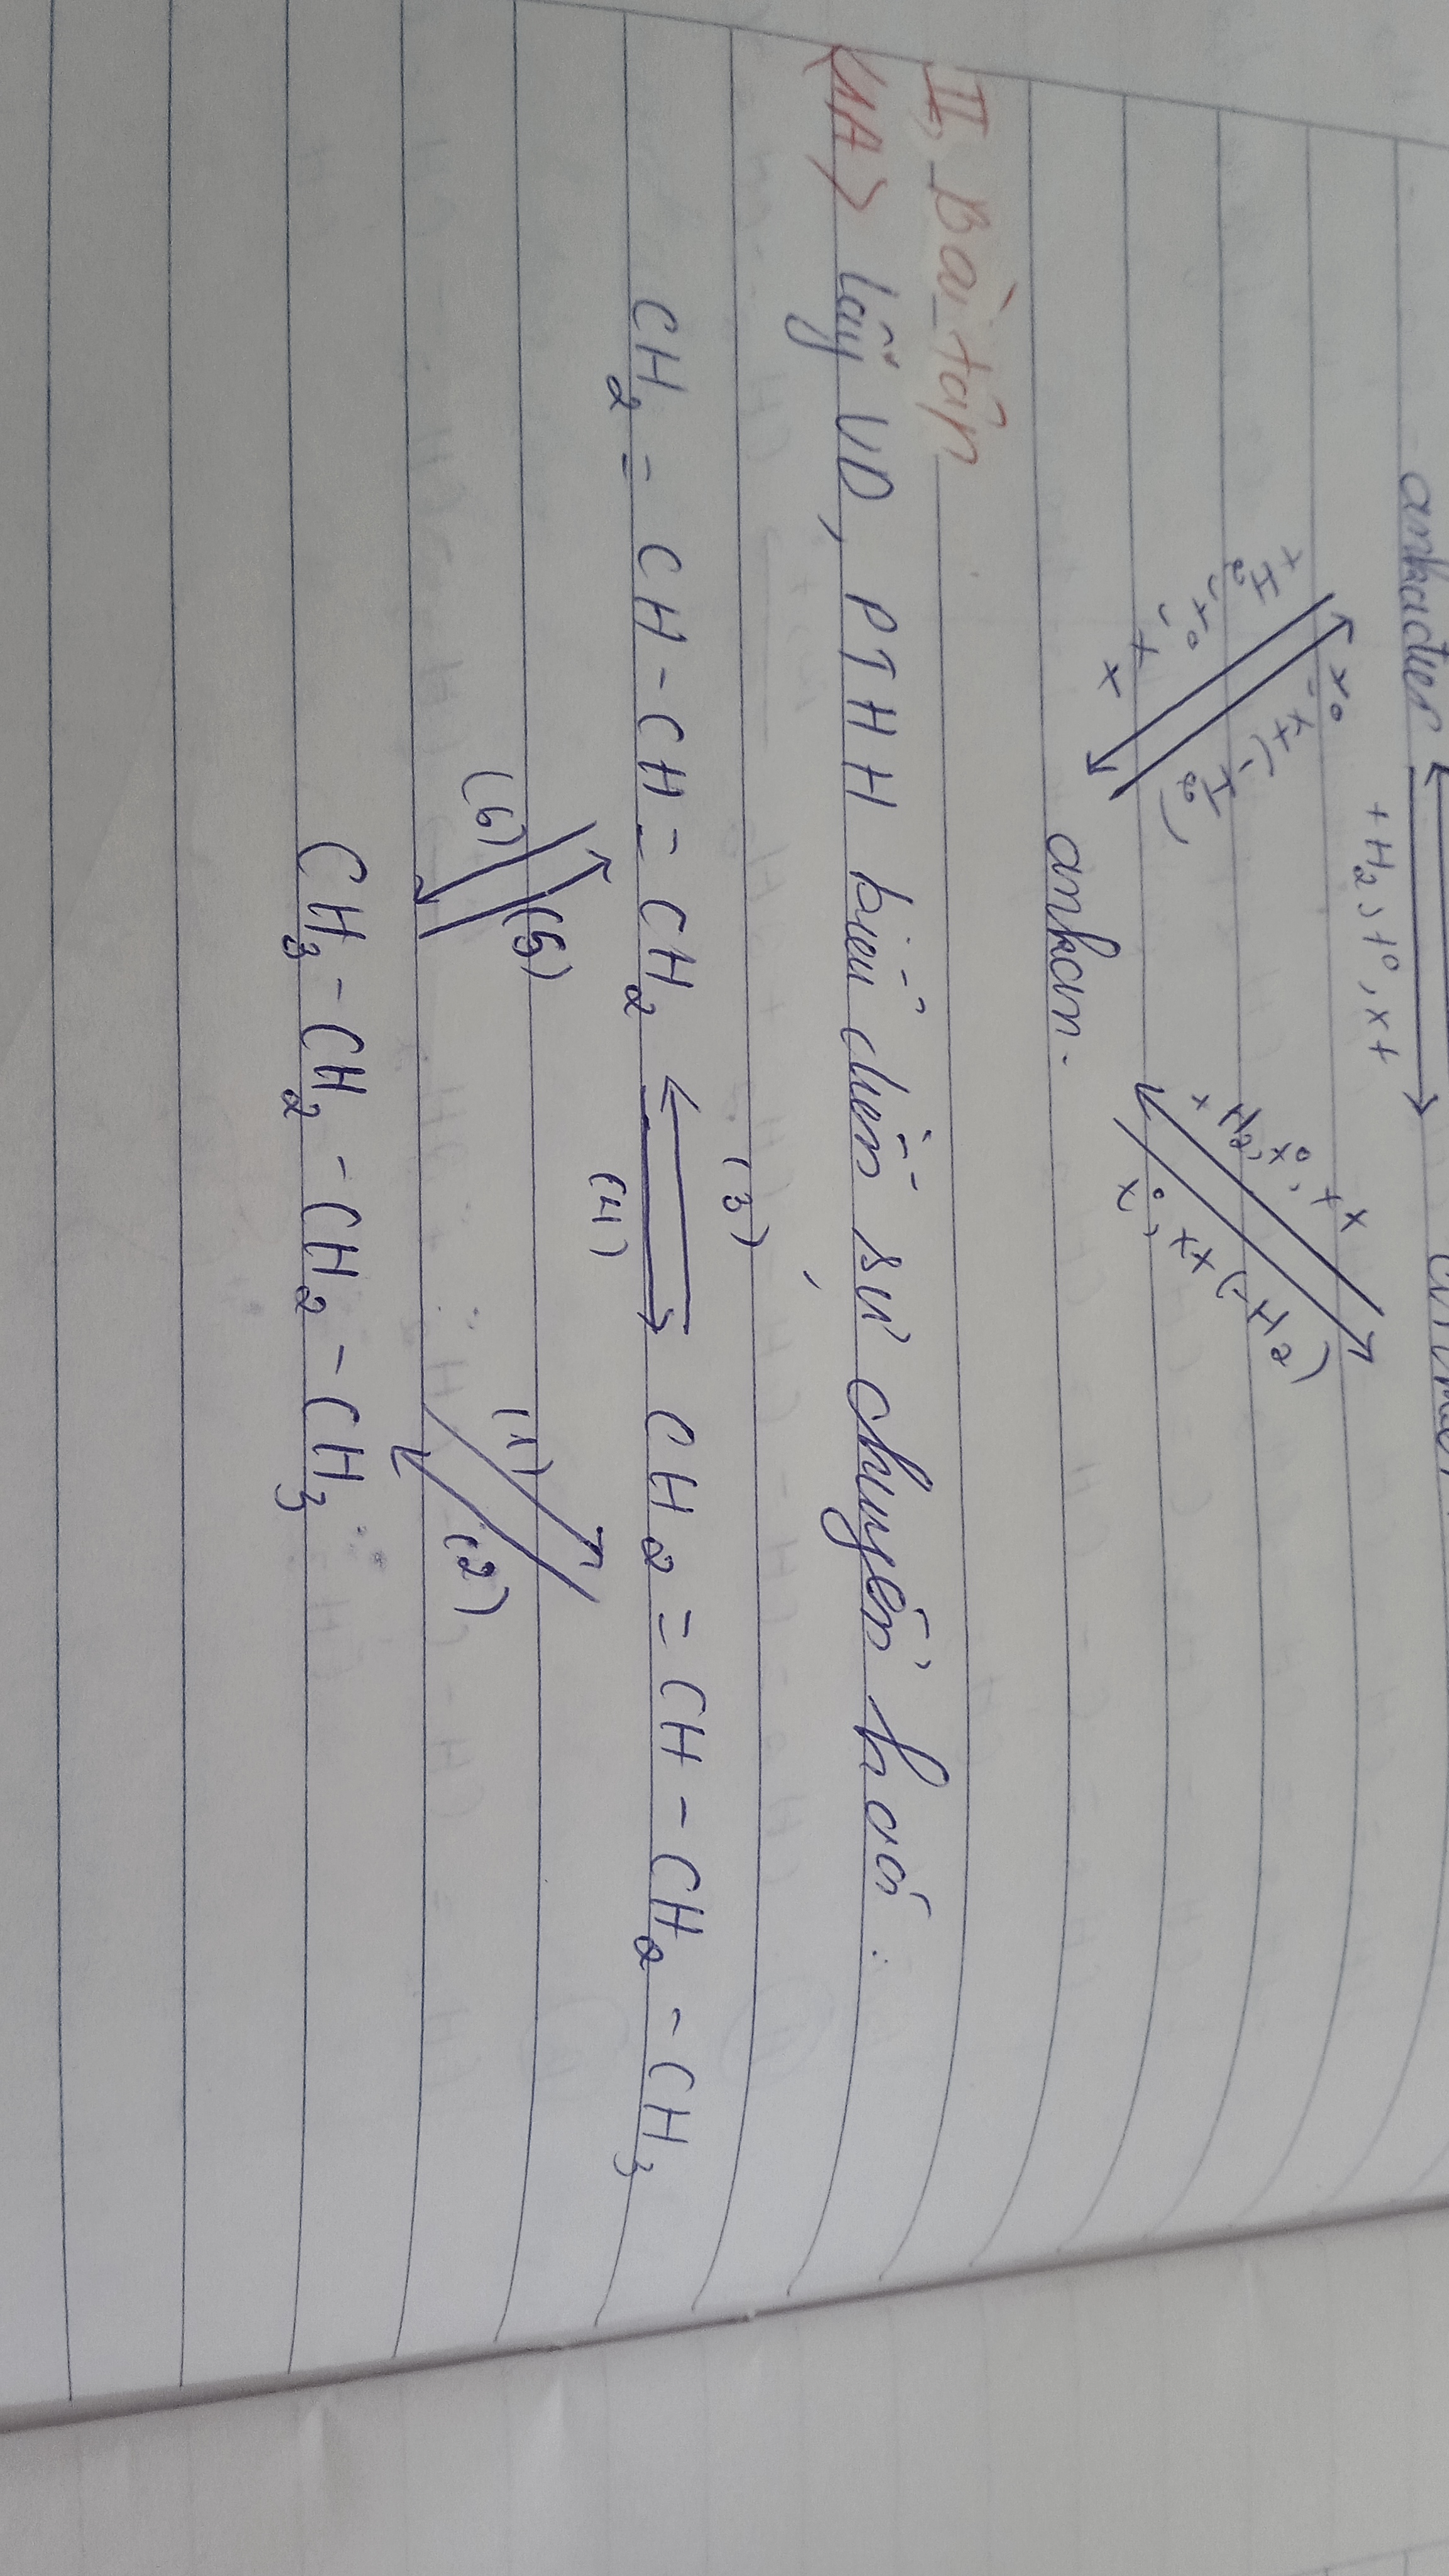 ankadien
+H2, t°, xt
+H2, t°, xt
t°, xt (-H2)
+H2, t°, xt
t°, xt (-H2)
ankan.
II, Bài tập
(4A) Lấy VD, PTHH biểu diễn sự chuyển hoá:
(3)
CH2 = CH - CH = CH2 ⇄ CH2 = CH - CH2 - CH3
(4)
(5) (1)
(6) (2)
CH3 - CH2 - CH2 - CH3